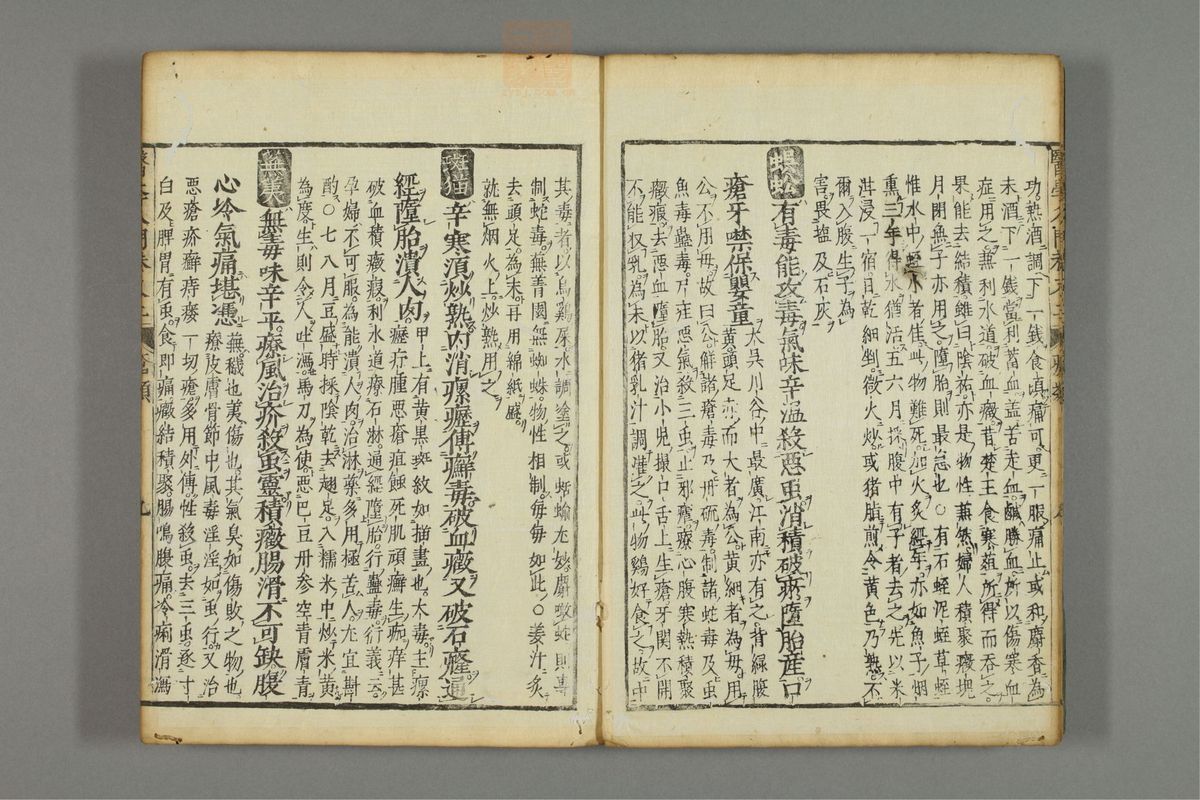 功熱酒調下一錢食頃痛可更一服痛止或和麝香為
末酒下一錢當利蓄血盖苦走血鹹勝血所以傷寒血
症用之兼利水道破血癥昔楚王食寒葅所得而吞之
果能去結積雖曰陰祐亦是物性兼然婦人積聚癥塊
月閉無子亦用之墮胎則最急也○有石蛭泥蛭草蛭
惟水中蛭小者佳此物難死加火炙經年亦如魚子烟
熏三年得水猶活五六月採腹中有子者去之先以米
泔浸一宿日乾細剉微火炒或猪脂煎令黄色乃熟不
爾入腹生子為
害畏塩及石灰
蜈蚣有毒能攻毒氣味辛温殺惡虫消積破瘀墮胎產口
瘡牙噤保嬰童
大吳川谷中最廣江南亦有之背緑腹
黄頭足赤而大者為公黄細者為母用
公不用母故曰公解諸瘡毒乃丹硫毒制諸蛇毒及虫
魚毒蠱毒疰惡氣殺三虫止邪瘧療心腹寒熱積聚
癥痕去惡血墮胎又治小兒撮口舌上生瘡牙関不開
不能収乳為末以猪乳汁調灌之此物鷄好食之故中
其毒者以烏鷄屎水調塗之或蛞蝓尤妙麝㗖蛇則專
制蛇毒無青閩無蜘蛛物性相制每每如此○姜汁炙
去頭足為末再用綿紙
就無烟火上炒熟用之
斑猫辛寒須炒熟内消瘰癧傅癬毒破血癥又破石癃通
經墮胎潰人肉
甲上有黄黒斑紋如描畫也大毒主瘰
癧疥腫惡瘡疽蝕死肌頑癬生瘢痒甚
破血積癥瘕利水道療石淋通經墮胎行蠱毒行義云
孕婦不可服為能潰人肉治淋藥多用極苦人尤宜斟
酌○七八月豆盛時採陰乾去翅足入糯米中炒米黄
為度生則令人吐瀉馬刀為使惡巴豆丹参空青膚青
蕪荑無毒味辛平療風治疥殺虫靈積癥腸滑不可缺腹
心冷氣痛堪憑
蕪穢也荑傷也其氣臭如傷敗之物也
療皮膚骨節中風毒淫淫如虫行又治
惡瘡疥癬痔瘻一切瘡多用外傅性殺虫去三虫逐寸
白及脾胃有虫食即痛癥結積聚腸鳴腹痛冷痢滑瀉